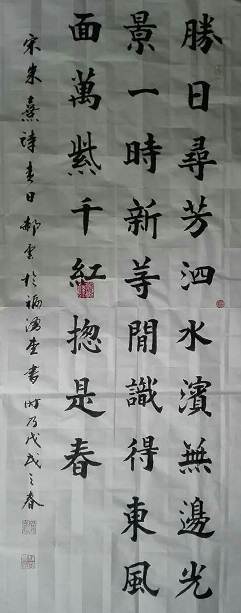 勝日尋芳泗水濱無邊光
景一時新等閒識得東風
面萬紫千紅揔是春
宋朱熹詩春日郝雲於福湧堂書時乃戊戌之春